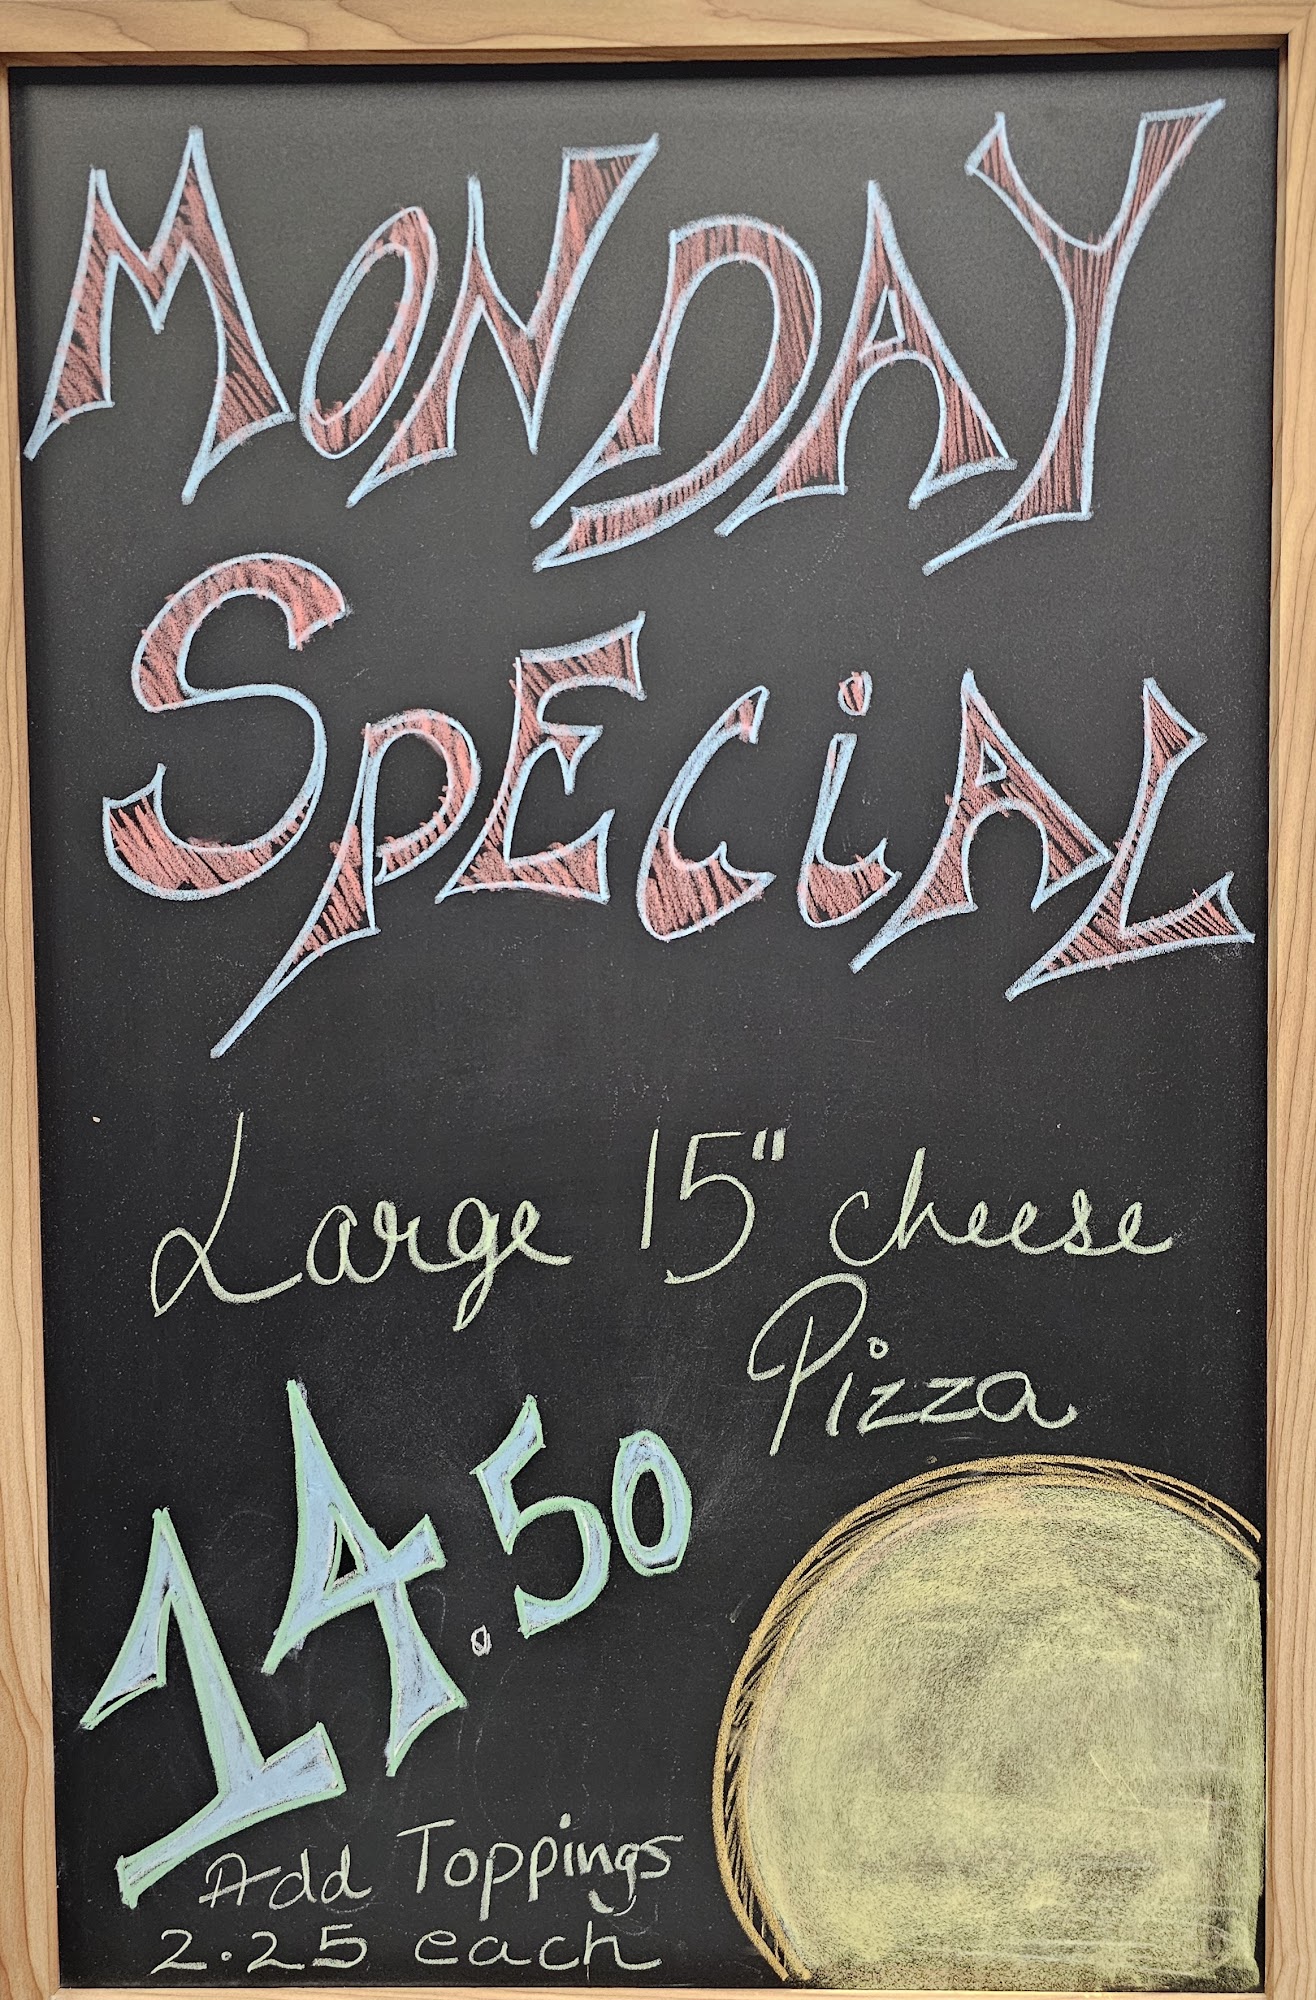 MONDAY
SPECiAL
Large 15" cheese
Pizza
14.50
Add Toppings
2.25 each